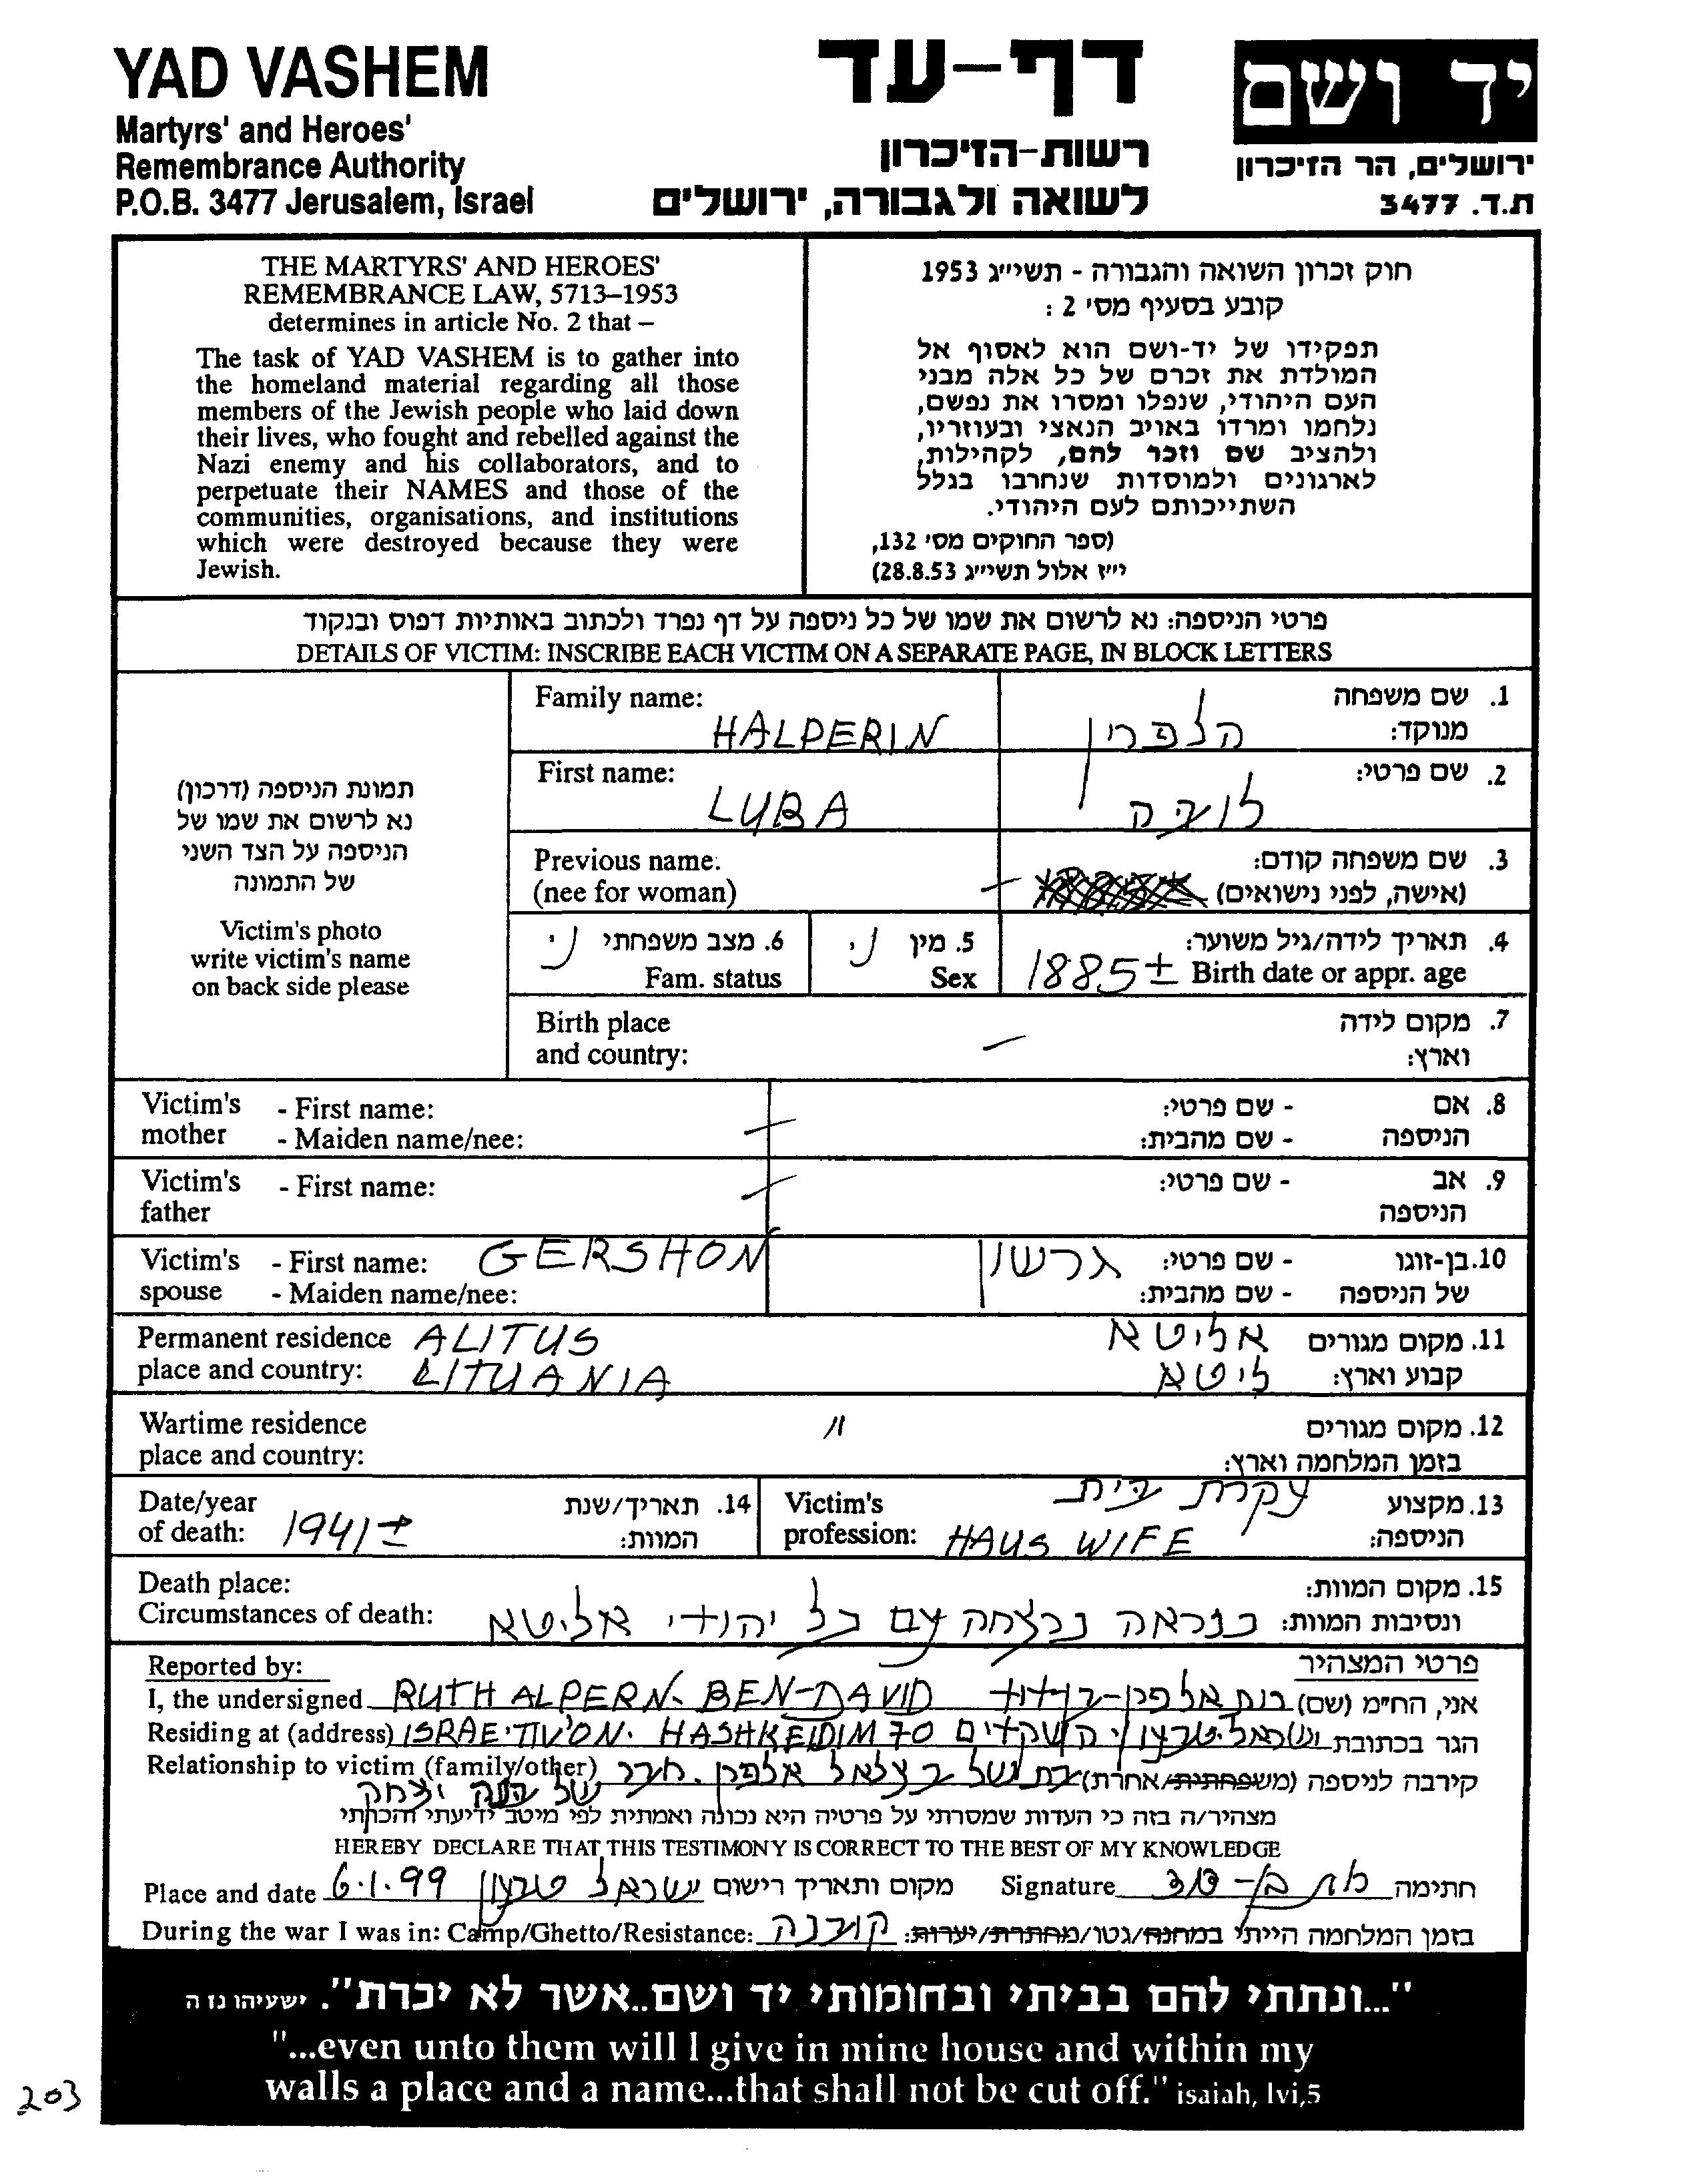 YAD VASHEM
Martyrs' and Heroes'
Remembrance Authority
P.O.B. 3477 Jerusalem, Israel
דף-עד
רשות-הזיכרון
לשואה ולגבורה, ירושלים
יד ושם
ירושלים, הר הזיכרון
ת.ד. 3477
THE MARTYRS' AND HEROES'
REMEMBRANCE LAW, 5713–1953
determines in article No. 2 that –
The task of YAD VASHEM is to gather into
the homeland material regarding all those
members of the Jewish people who laid down
their lives, who fought and rebelled against the
Nazi enemy and his collaborators, and to
perpetuate their NAMES and those of the
communities, organisations, and institutions
which were destroyed because they were
Jewish.
חוק זכרון השואה והגבורה - תשי״ג 1953
קובע בסעיף מס׳ 2 :
תפקידו של יד-ושם הוא לאסוף אל
המולדת את זכרם של כל אלה מבני
העם היהודי, שנפלו ומסרו את נפשם,
נלחמו ומרדו באויב הנאצי ובעוזריו,
ולהציב שם וזכר להם, לקהילות,
לארגונים ולמוסדות שנחרבו בגלל
השתייכותם לעם היהודי.
(ספר החוקים מס׳ 132,
י״ז אלול תשי״ג 28.8.53)
פרטי הניספה: נא לרשום את שמו של כל ניספה על דף נפרד ולכתוב באותיות דפוס ובנקוד
DETAILS OF VICTIM: INSCRIBE EACH VICTIM ON A SEPARATE PAGE, IN BLOCK LETTERS
תמונת הניספה (דרכון)
נא לרשום את שמו של
הניספה על הצד השני
של התמונה
Victim's photo
write victim's name
on back side please
Family name: HALPERIN
1. שם משפחה מנוקד: הלפרין
First name: LUBA
2. שם פרטי: לובה
Previous name.
(nee for woman) –
3. שם משפחה קודם:
(אישה, לפני נישואים)
4. תאריך לידה/גיל משוער:
Birth date or appr. age 1885±
5. מין נ׳
Sex
6. מצב משפחתי נ׳
Fam. status
Birth place
and country: –
7. מקום לידה
וארץ:
Victim's mother - First name:
- Maiden name/nee: –
8. אם הניספה - שם פרטי:
- שם מהבית:
Victim's father - First name: –
9. אב הניספה - שם פרטי:
Victim's spouse - First name: GERSHON
- Maiden name/nee:
10. בן-זוגו של הניספה - שם פרטי: גרשון
- שם מהבית:
Permanent residence ALITUS
place and country: LITUANIA
11. מקום מגורים אליטא
קבוע וארץ: ליטא
Wartime residence
place and country: "
12. מקום מגורים
בזמן המלחמה וארץ:
Date/year
of death: 1941±
14. תאריך/שנת
המוות:
Victim's
profession: HAUS WIFE
13. מקצוע הניספה: עקרת בית
Death place:
Circumstances of death:
15. מקום המוות:
ונסיבות המוות: כנראה נרצחה עם כל יהודי אליטא
Reported by:
פרטי המצהיר
I, the undersigned RUTH ALPERN. BEN-DAVID
אני, הח״מ (שם) רות אלפרן-בן דוד
Residing at (address) ISRAE. TIV'ON. HASHKEIDIM 70
הגר בכתובת ישראל. טבעון. השקדים
Relationship to victim (family/other)
קירבה לניספה (משפחתית/אחרת) בת של בצלאל אלפרן. חבר
של יצחק
מצהיר/ה בזה כי העדות שמסרתי על פרטיה היא נכונה ואמתית לפי מיטב ידיעתי והכרתי
HEREBY DECLARE THAT THIS TESTIMONY IS CORRECT TO THE BEST OF MY KNOWLEDGE
Place and date 6.1.99 ישראל טבעון מקום ותאריך רישום
Signature חתימה
During the war I was in: Camp/Ghetto/Resistance:
בזמן המלחמה הייתי במחנה/גטו/מחתרת/יערות: קובנה
"...ונתתי להם בביתי ובחומותי יד ושם..אשר לא יכרת". ישעיהו נו ה
"...even unto them will I give in mine house and within my
walls a place and a name...that shall not be cut off." isaiah, lvi,5
203